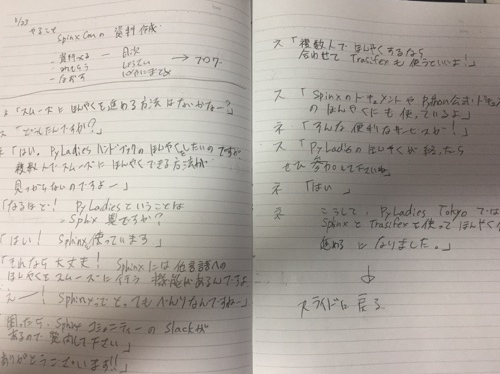 やること
SphinxConの資料作成
目次
→ ブログ
「スムーズにほんやくを進める方法はないかなー?」
「どうしたんですか?」
「はい、PyLadiesハンドブックのほんやくをしたいのですが
複数人でスムーズにほんやくできる方法が
見つからないのですよー」
「なるほど! PyLadiesということは
Sphinx製ですか?」
「はい! Sphinx使っています」
「それなら大丈夫! Sphinxには他言語への
ほんやくをスムーズに行う機能があるんですよ
えー! Sphinxってとってもべんりなんですねー」
「困ったら、SphinxコミュニティーのSlackが
あるので質問して下さい」
ありがとうございます!!」
ス「複数人でほんやくするなら
合わせてTrasifexも使うといいよ!」
ス「SphinxのドキュメントやPython公式ドキュメント
のほんやくにも使っているよ」
ネ「そんな便利なサービスが!」
ス「PyLadiesのほんやくが終ったら
ぜひ参加して下さいね」
ネ「はい」
こうして、PyLadies Tokyoでは
SphinxとTrasifexを使ってほんやくを
進める になりました。」
↓
スライドに戻る